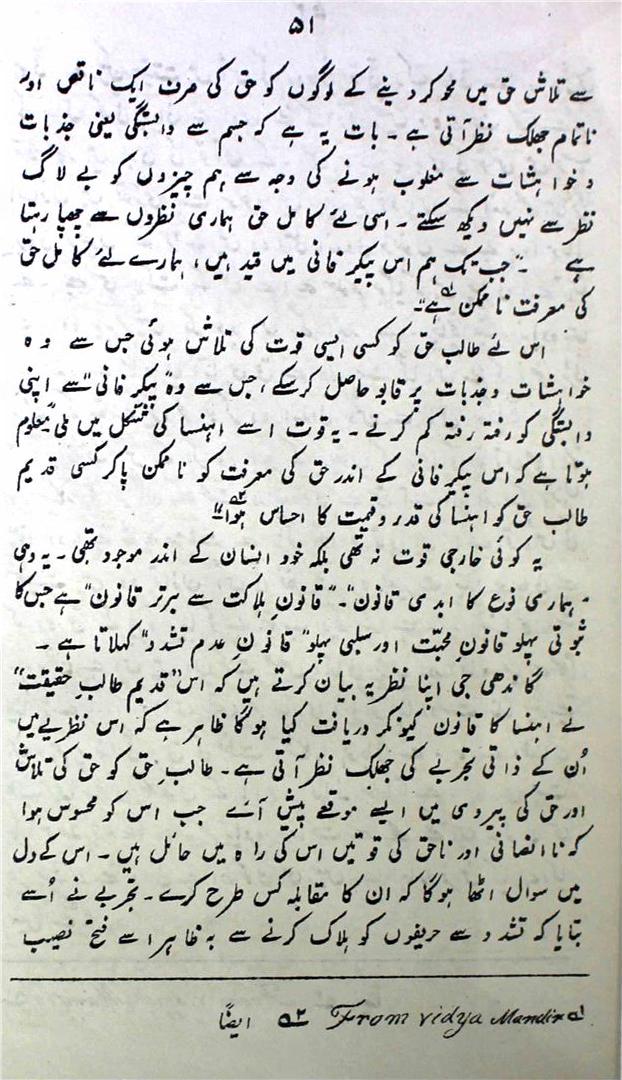 ۵۱
سے تلاش حق میں محو کر دینے کے لوگوں کو حق کی صرف ایک ناقص اور
ناتمام جھلک نظر آتی ہے۔ بات یہ ہے کہ جسم سے وابستگی یعنی جذبات
و خواہشات سے مغلوب ہونے کی وجہ سے ہم چیزوں کو بے لاگ
نظر سے نہیں دیکھ سکتے۔ اسی لئے کامل حق ہماری نظروں سے چھپا رہتا
ہے۔ "جب تک ہم اس پیکر فانی میں قید ہیں، ہمارے لئے کامل حق
کی معرفت ناممکن ہے"۔ ۱؎
اس لئے طالب حق کو کسی ایسی قوت کی تلاش ہوئی جس سے وہ
خواہشات و جذبات پر قابو حاصل کر سکے، جس سے وہ "پیکر فانی" سے اپنی
وابستگی کو رفتہ رفتہ کم کرنے۔ یہ قوت اسے اہنسا کی شکل میں ملی "معلوم
ہوتا ہے کہ اس پیکر فانی کے اندر حق کی معرفت کو ناممکن پاکر کسی قدیم
طالب حق کو اہنسا کی قدر و قیمت کا احساس ہوا"۔ ۲؎
یہ کوئی خارجی قوت نہ تھی بلکہ خود انسان کے اندر موجود تھی۔ یہ وہی
"ہماری نوع کا ابدی قانون"۔ "قانونِ ہلاکت سے برتر قانون" ہے جس کا
ثبوتی پہلو قانونِ محبّت اور سلبی پہلو "قانونِ عدم تشدد" کہلاتا ہے۔
گاندھی جی اپنا نظریہ بیان کرتے ہیں کہ اس "قدیم طالبِ حقیقت"
نے اہنسا کا قانون کیونکر دریافت کیا ہوگا ظاہر ہے کہ اس نظریے میں
اُن کے ذاتی تجربے کی جھلک نظر آتی ہے۔ طالبِ حق کو حق کی تلاش
اور حق کی پیروی میں ایسے موقعے پیش آئے جب اس کو محسوس ہوا
کہ ناانصافی اور ناحق کی قوتیں اس کی راہ میں حائل ہیں۔ اس کے دل
میں سوال اٹھا ہوگا کہ ان کا مقابلہ کس طرح کرے۔ تجربے نے اُسے
بتایا کہ تشدد سے حریفوں کو ہلاک کرنے سے بہ ظاہر اسے فتح نصیب
۱؎ From vidya Mandir ۲؎ ایضًا